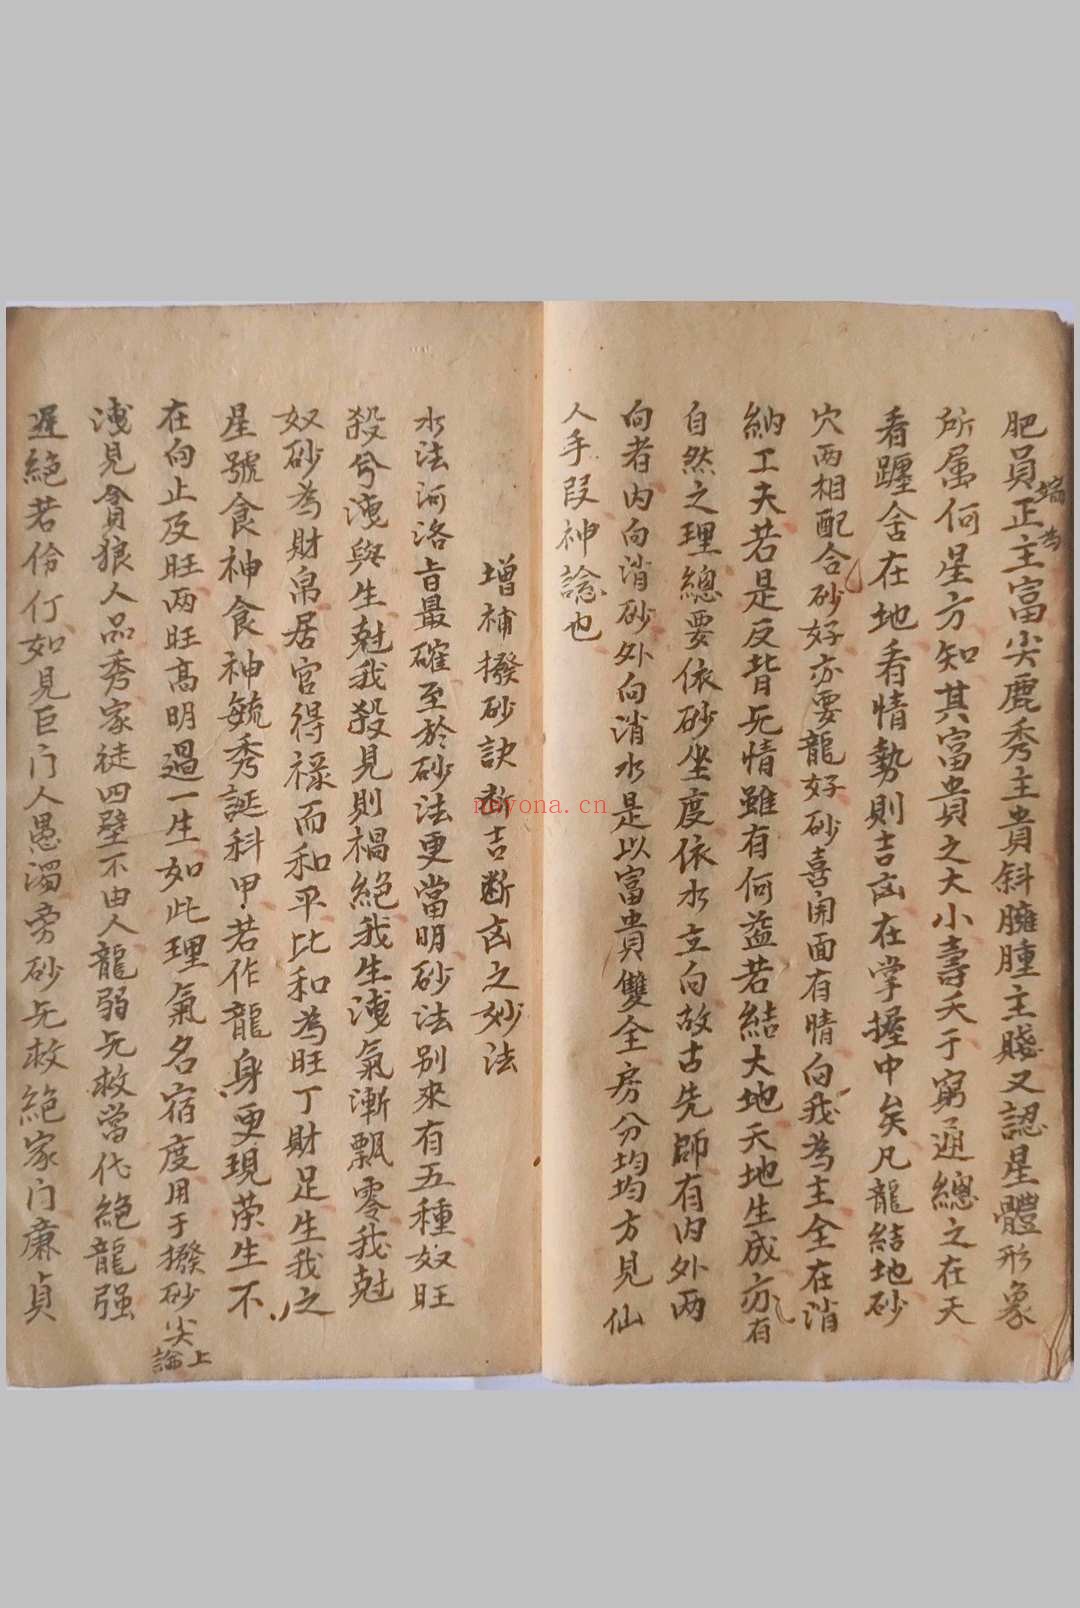 肥員端正為主富尖鹿秀主貴斜臃腫主賤又認星體形象
所属何星方知其富貴之大小壽夭于窮通總之在天
看躔舍在地看情勢則吉凶在掌握中矣凡龍結地砂
穴两相配合砂好亦要龍好砂喜開面有晴向我為主全在消
納工夫若是反背旡情雖有何益若結大地天地生成亦有
自然之理總要依砂坐度依水立向故古先師有内外两
向者内向消砂外向消水是以富貴雙全房分均均方見仙
人手段神諗也
增補撥砂訣断吉断凶之妙法
水法河洛旨最確至於砂法更當明砂法别來有五種奴旺
殺兮洩與生尅我殺見則禍絕我生洩氣漸飄零我尅
奴砂為財帛居官得禄而和平比和為旺丁財足生我之
星號食神食神毓秀誕科甲若作龍身更現荣生不
在向止及旺两旺高明過一生如此理氣名宿度用于撥砂尖上論
洩見貪狼人品秀家徒四壁不由人龍弱旡救當代絕龍强
遲絕若伶仃如見巨门人愚濁旁砂旡救絕家门廉貞
nbyona.cn